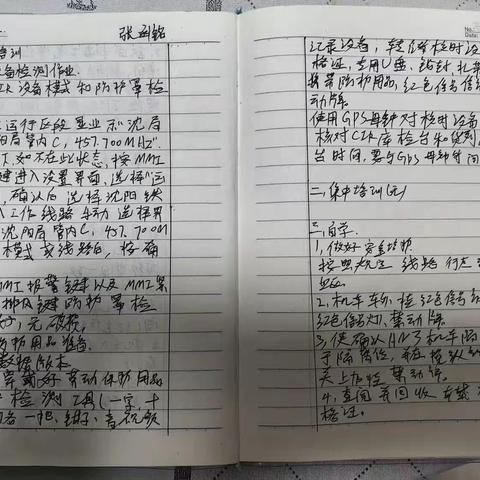 张函铭
培训
设备检测作业.
CIR设备模式和防护罩检
运行区段 显示"沈局
阳局管内C, 457.700MHz".
如不在此状态, 按MMI
键进入设置界面, 选择"运
, 确认后 选择 沈阳铁
入工作线路 手动 选择界
沈阳局管内C, 457.700M
模式或线路后, 按确
MMI报警键以及MMI紧
排风键防护罩检
好, 无破损.
防护用品准备.
数据版本
穿戴好 劳动保护用品
检测工具(一字, 十
各一把, 钳子, 音视频
No.
Date.
记录设备,
格证, 专用U盘, 铅封, 扎带
携带防护用品, 红色信号
动牌.
使用GPS母钟对核时设备
核对CIR库检台和
台时间, 要与GPS母钟时间
二, 集中培训(无)
三, 自学.
1, 做好安全防护
按照规定 线路行走
2, 机车车侧, 挂红色信号
红色信号灯, 禁动牌.
3, 使
于隔离位, 在
关上加挂 禁动牌.
4, 查阅并回收 车载
格证.